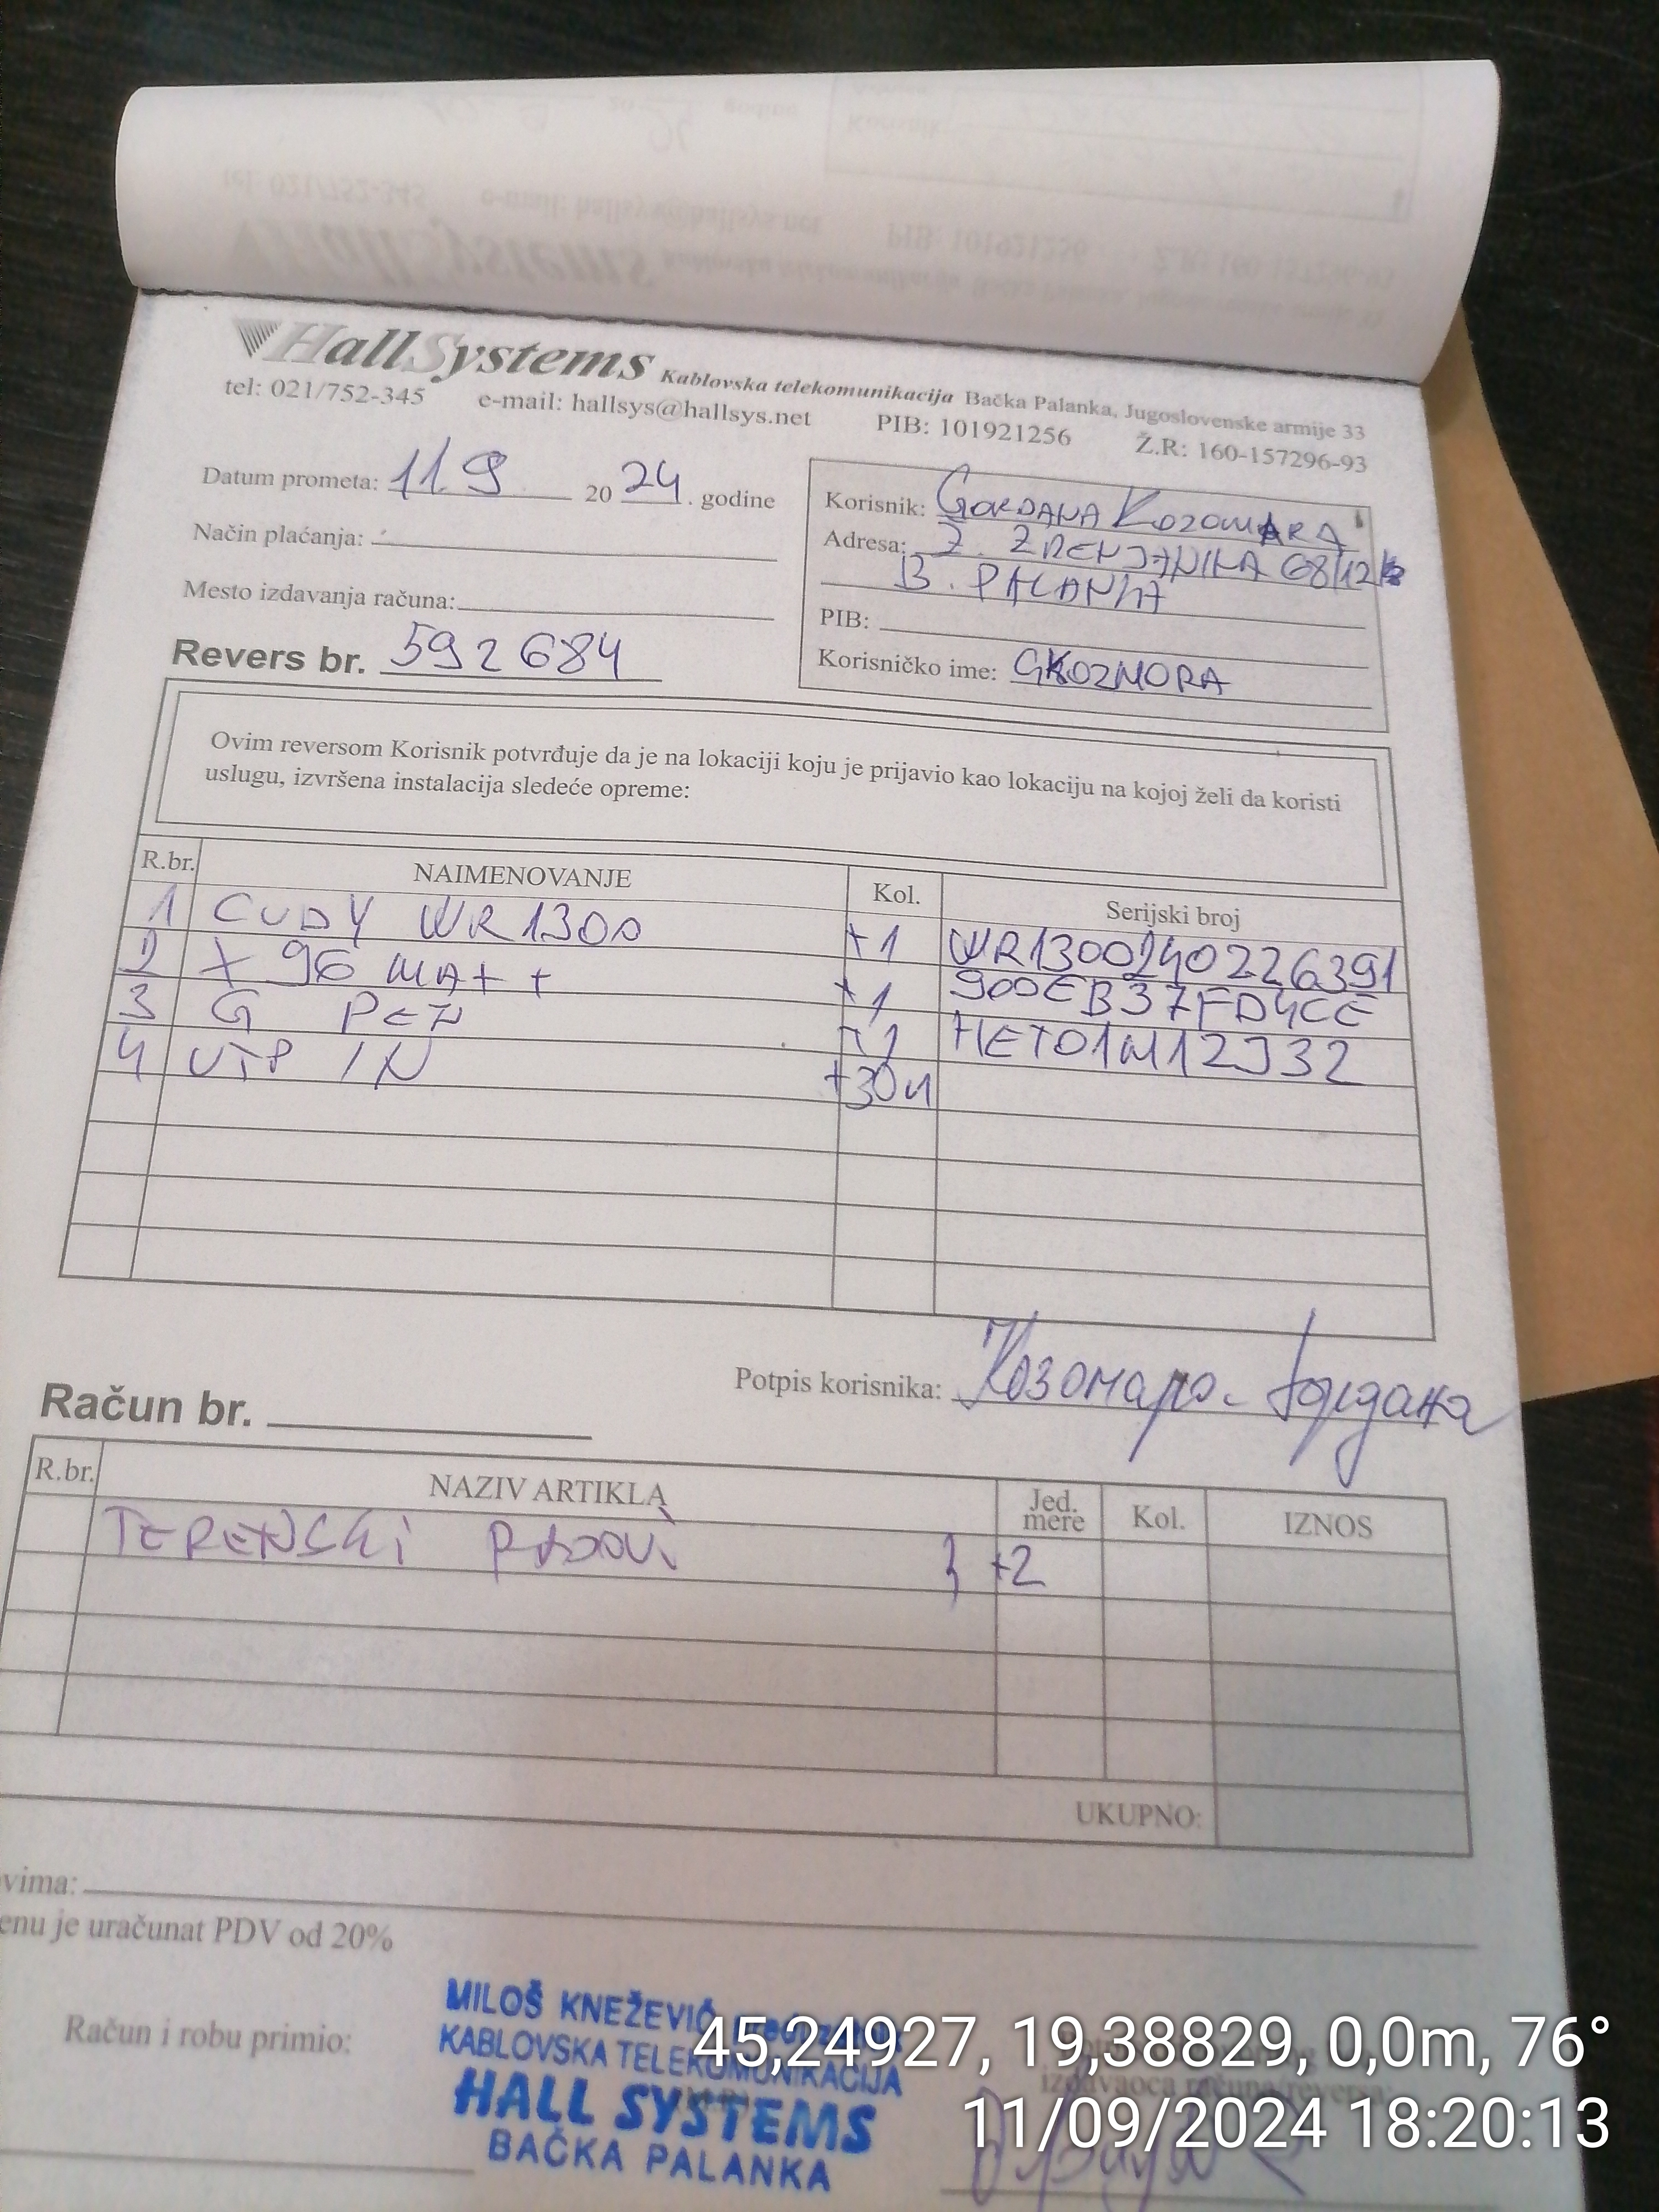 HallSystems Kablovska telekomunikacija Bačka Palanka, Jugoslovenske armije 33
tel: 021/752-345 e-mail: hallsys@hallsys.net PIB: 101921256 Ž.R: 160-157296-93
Datum prometa: 11.9 20 24. godine
Način plaćanja:
Mesto izdavanja računa:
Revers br. 592684
Korisnik: GORDANA KOZOMARA
Adresa: Ž. ZRENJANINA 68/12
B. PALANKA
PIB:
Korisničko ime: GKOZMORA
Ovim reversom Korisnik potvrđuje da je na lokaciji koju je prijavio kao lokaciju na kojoj želi da koristi
uslugu, izvršena instalacija sledeće opreme:
R.br. NAIMENOVANJE Kol. Serijski broj
1 CUDY WR1300 +1 WR1300240226391
2 X 96 MA++ +1 900EB37FD4CE
3 G PEN +1 HET01M12J32
4 UTP IN +30M
Potpis korisnika: Козомара Гордана
Račun br.
R.br. NAZIV ARTIKLA Jed. mere Kol. IZNOS
TERENSKI RADOVI } +2
UKUPNO:
vima:
enu je uračunat PDV od 20%
Račun i robu primio:
MILOŠ KNEŽEVIĆ
KABLOVSKA TELEKOMUNIKACIJA
HALL SYSTEMS
BAČKA PALANKA
izdavaoca računa/reversa:
45,24927, 19,38829, 0,0m, 76°
11/09/2024 18:20:13